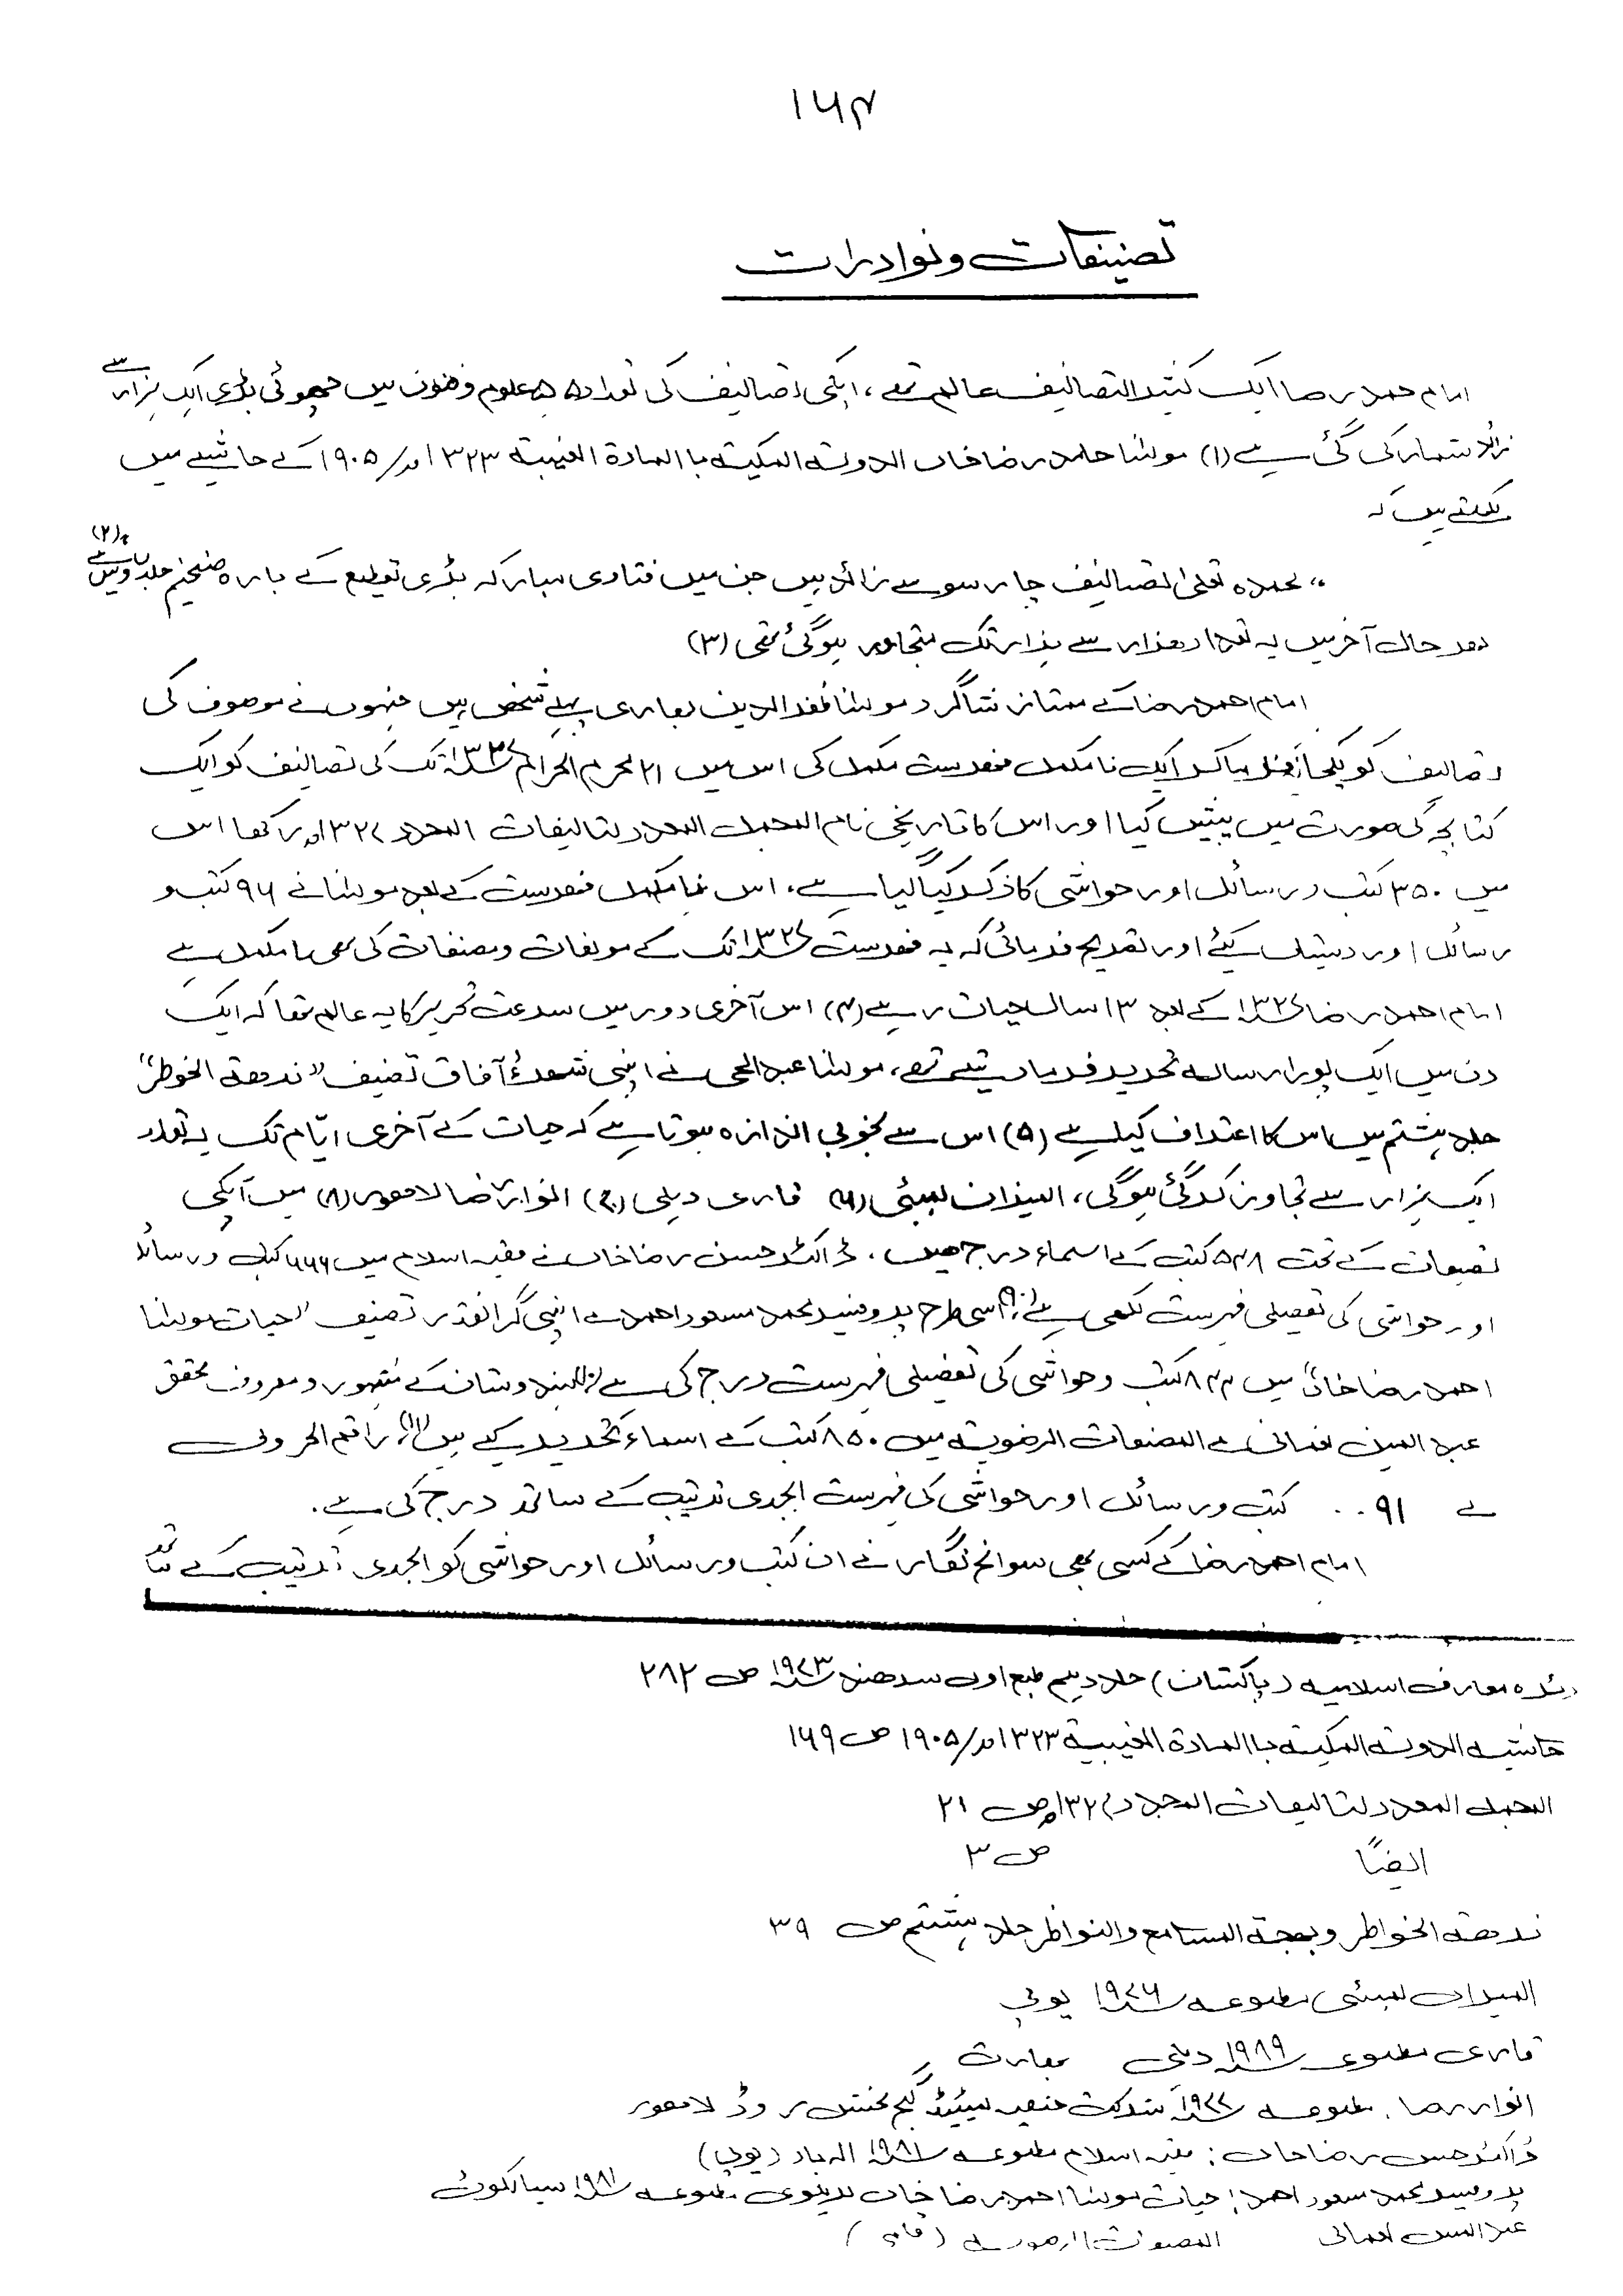 ۱۶۴
تصنیفات و نوادرات
امام احمد رضا ایک کثیر التصانیف عالم تھے، اپکی تصانیف کی تعداد ۵۵ علوم و فنون میں چھوٹی بڑی ایک ہزار سے
زائد شمار کی گئی ہے (۱) مولٰنا حامد رضا خاں الدولۃ المکیۃ با المادۃ الغیبیۃ ۱۳۲۳ھ/۱۹۰۵ کے حاشیے میں
لکھتے ہیں کہ
"بحمدہ تعلٰی تصانیف چار سو سے زائد ہیں جن میں فتاوی مبارکہ بڑی تقطیع کے بارہ ضخیم جلدوں میں ہے" (۲)
بہر حال آخر میں یہ تعداد ہزار سے ہزار تک متجاوز ہوگئی تھی (۳)
امام احمد رضا کے ممتاز شاگرد مولٰنا ظفر الدین بہاری پہلے شخص ہیں جنہوں نے موصوف کی
تصانیف کو یکجا فرما کر ایک نا مکمل فہرست مکمل کی اس میں ۲۱ محرم الحرام ۱۳۲۷ھ تک کی تصانیف کو ایک
کتابچہ کی صورت میں پیش کیا اور اس کا تاریخی نام المجمل المعدد لتالیفات المجدد ۱۳۲۷ھ رکھا اس
میں ۳۵۰ کتب و رسائل اور حواشی کا ذکر کیا گیا ہے، اس نا مکمل فہرست کے بعد مولٰنا نے ۹۶ کتب و
رسائل اور دستیاب کیئے اور تصریح فرمائی کہ یہ فہرست ۱۳۲۷ھ تک کے مولفات و مصنفات کی بھی نا مکمل ہے
امام احمد رضا ۱۳۲۷ھ کے بعد ۱۳ سال حیات رہے (۴) اس آخری دور میں سرعت تحریر کا یہ عالم تھا کہ ایک
دن میں ایک پورا رسالہ تحریر فرما دیتے تھے، مولٰنا عبد الحی نے اپنی شہرۂ آفاق تصنیف "نزھۃ الخواطر"
جلد ہشتم میں اس کا اعتراف کیا ہے (۵) اس سے بخوبی اندازہ ہوتا ہے کہ حیات کے آخری ایّام تک یہ تعداد
ایک ہزار سے تجاوز کر گئی ہوگی، المیزان بمبئی (۶) قاری دہلی (۷) انوار رضا لاھور (۸) میں آپکی
تصنیفات کے تحت ۵۴۸ کتب کے اسماء درج ھیں، ڈاکٹر حسن رضا خاں نے فقیہ اسلام میں ۶۶۶ کتب و رسائل
اور حواشی کی تفصیلی فہرست لکھی ہے (۹) اسی طرح پروفیسر محمد مسعود احمد نے اپنی گرانقدر تصنیف "حیات مولٰنا
احمد رضا خاں" میں ۸۴۴ کتب و حواشی کی تفصیلی فہرست درج کی ہے (۱۰) ہندوستان کے مشہور و معروف محقق
عبد المبین نعمانی نے المصنفات الرضویۃ میں ۸۵۰ کتب کے اسماء تحریر کیے ہیں (۱۱) راقم الحروف
نے ۹۱۰۰ کتب و رسائل اور حواشی کی فہرست ابجدی ترتیب کے ساتھ درج کی ہے۔
امام احمد رضا کے کسی بھی سوانح نگار نے ان کتب و رسائل اور حواشی کو ابجدی ترتیب کے ساتھ
دائرہ معارف اسلامیہ (پاکستان) جلد دہم طبع اول سرھند ۱۹۷۳ء ص ۲۸۲
حاشیہ الدولۃ المکیۃ با المادۃ الغیبیۃ ۱۳۲۳ھ/۱۹۰۵ ص ۱۶۹
المجمل المعدد لتالیفات المجدد ۱۳۲۷ھ ص ۲۱
ایضًا ص ۳
نزھۃ الخواطر و بھجۃ المسامع والنواظر جلد ہشتم ص ۳۹
المیزان بمبئی مطبوعہ ۱۹۷۶ء یوپی
قاری مطبوعہ ۱۹۸۹ء دہلی بھارت
انوار رضا، مطبوعہ ۱۹۷۷ء شرکت حنفیہ لمیٹیڈ گنج بخش روڈ لاھور
ڈاکٹر حسن رضا خاں: فقیہ اسلام مطبوعہ ۱۹۸۱ء الہ باد (یوپی)
پروفیسر محمد مسعود احمد: حیات مولٰنا احمد رضا خاں بریلوی مطبوعہ ۱۹۸۱ء سیالکوٹ
عبد المبین نعمانی المصنفات الرضویہ (قلمی)